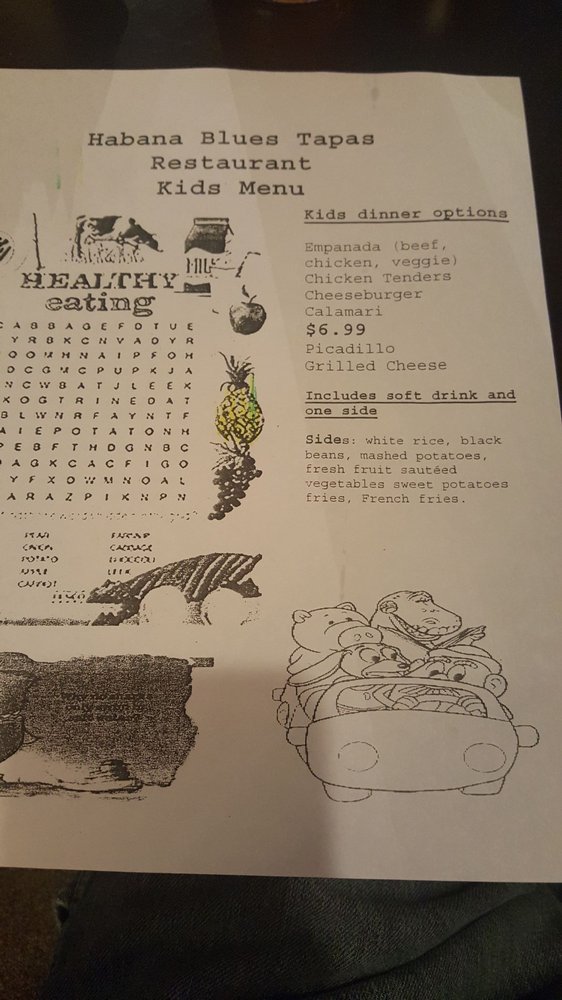 Habana Blues Tapas
Restaurant
Kids Menu
MILK
HEALTHY
eating
C A B B A G E F D T U E
Y R B K C N V A D Y R
O O M H N A I P F O H
D C G M C P U P K J A
N C W B A T J L E E K
K O G T R I N E D A T
B L W N R F A Y N T F
A I E P O T A T O N H
P E B F T H D G N B C
D A G K C A C F I G O
Y F X O W M N O A L
A R A Z P I K N P N
PEAR
ONION
CABBAGE
POTATO
BROCCOLI
APPLE
LEEK
CARROT
Kids dinner options
Empanada (beef,
chicken, veggie)
Chicken Tenders
Cheeseburger
Calamari
$6.99
Picadillo
Grilled Cheese
Includes soft drink and
one side
Sides: white rice, black
beans, mashed potatoes,
fresh fruit sautéed
vegetables sweet potatoes
fries, French fries.